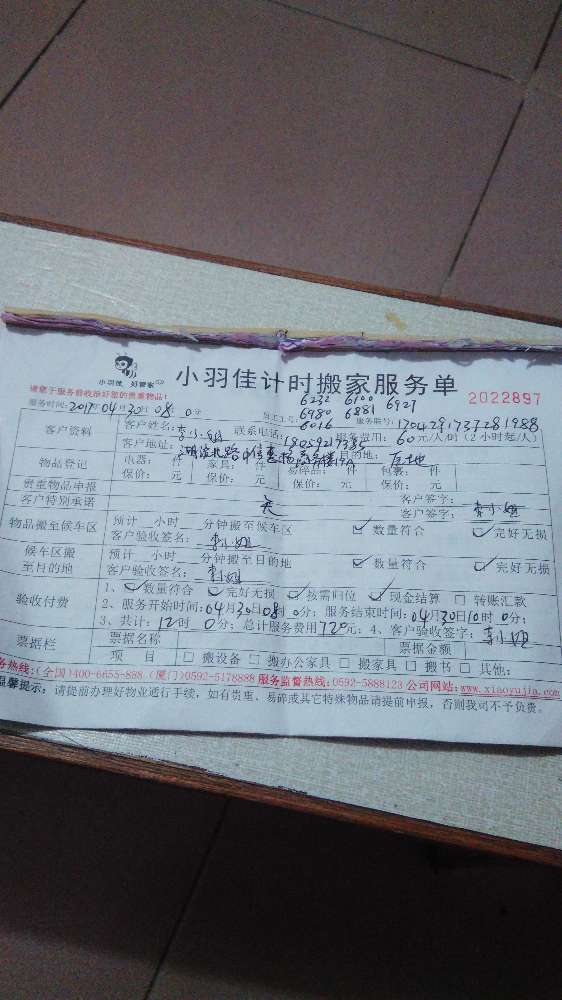 小羽佳 好管家
小羽佳计时搬家服务单
2022897
请您于服务前收拾好您的贵重物品！
6232 6100 6927
6980 6881
6016
服务时间：2017年04月30日08时0分
员工工号：
服务账号：1704291737281988
客户资料
客户姓名：李小姐
联系电话：18059217385
服务费用：60元/人/时（2小时起/人）
客户地址：
目的地：原地
物品登记
电器： 件 家具： 件 易碎品： 件 包裹： 件
保价： 元 保价： 元 保价： 元 保价： 元
贵重物品申报
无
客户签字：
客户特别承诺
客户签字：李小姐
物品搬至候车区
预计__小时__分钟搬至候车区
数量符合 完好无损
客户验收签名：李小姐
候车区搬至目的地
预计__小时__分钟搬至目的地
数量符合 完好无损
客户验收签名：李小姐
验收付费
1、数量符合 完好无损 按需归位 现金结算 转账汇款
2、服务开始时间：04月30日08时0分；服务结束时间：04月30日10时0分；
3、共计：12时0分；总计服务费用720元；4、客户验收签字：李小姐
票据栏
票据名称 票据金额
项 目 搬设备 搬办公家具 搬家具 搬书 其他：
服务热线：（全国）400-6655-888（厦门）0592-5178888 服务监督热线：0592-5888123 公司网站：www.xiaoyujia.com
温馨提示：请提前办理好物业通行手续，如有贵重、易碎或其它特殊物品请提前申报，否则我司不予负责。